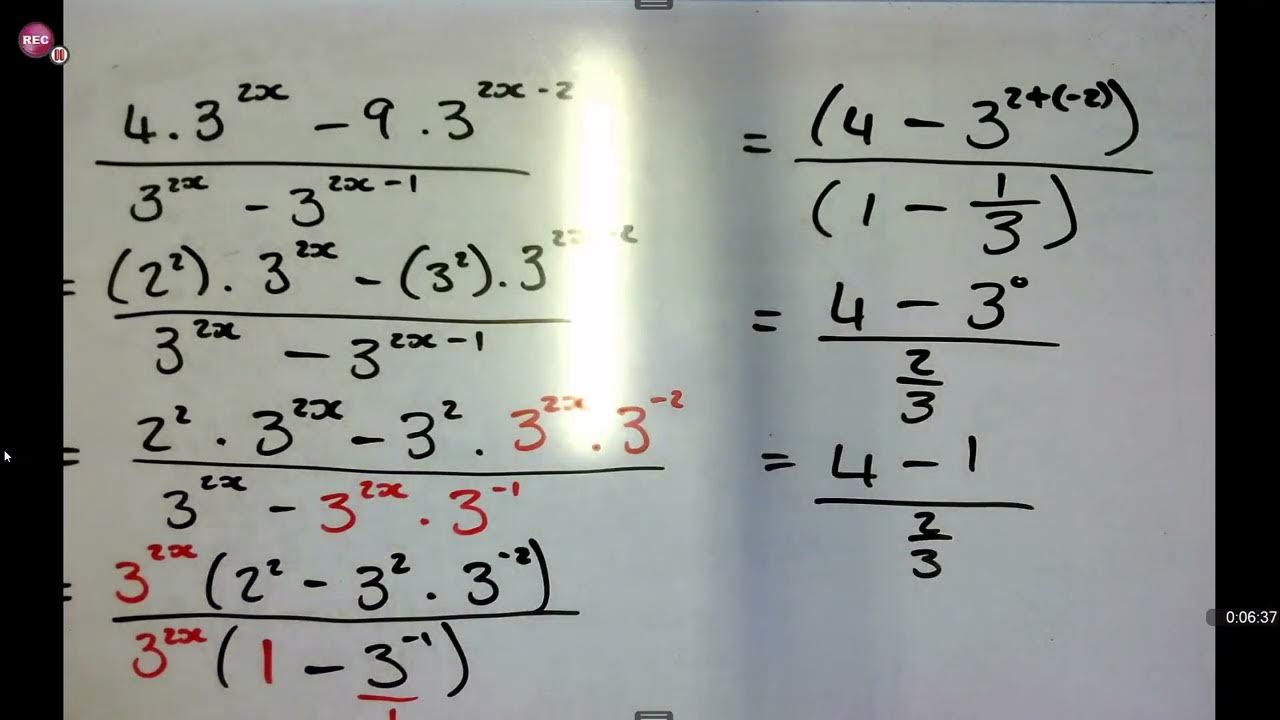 REC
4 . 3^{2x} - 9 . 3^{2x - 2}
3^{2x} - 3^{2x - 1}
= (2^2) . 3^{2x} - (3^2) . 3^{2x - 2}
3^{2x} - 3^{2x - 1}
= 2^2 . 3^{2x} - 3^2 . 3^{2x} . 3^{-2}
3^{2x} - 3^{2x} . 3^{-1}
= 3^{2x} (2^2 - 3^2 . 3^{-2})
3^{2x} (1 - 3^{-1})
1
= (4 - 3^{2+(-2)})
(1 - 1/3)
= 4 - 3^0
2/3
= 4 - 1
2/3
0:06:37